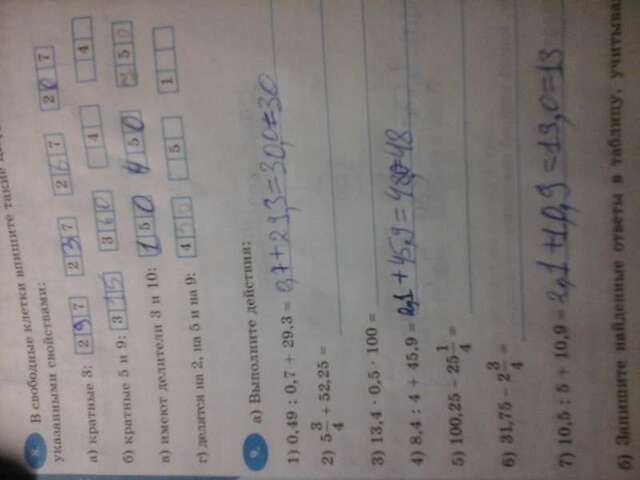 8. В свободные клетки впишите такие
указанными свойствами:
а) кратные 3: 297 237 267 207
б) кратные 5 и 9: 315 360 4 4
в) имеют делители 3 и 10: 150 450 250
г) делятся на 2, на 5 и на 9: 4 5 1
9. а) Выполните действия:
1) 0,49 : 0,7 + 29,3 = 0,7+29,3=30,0=30
2) 5 3/4 + 52,25 =
3) 13,4 · 0,5 · 100 =
4) 8,4 : 4 + 45,9 = 2,1+45,9=48,0=48
5) 100,25 − 25 1/4 =
6) 31,75 − 2 3/4 =
7) 10,5 : 5 + 10,9 = 2,1+10,9=13,0=13
б) Запишите найденные ответы в таблицу, учитывая